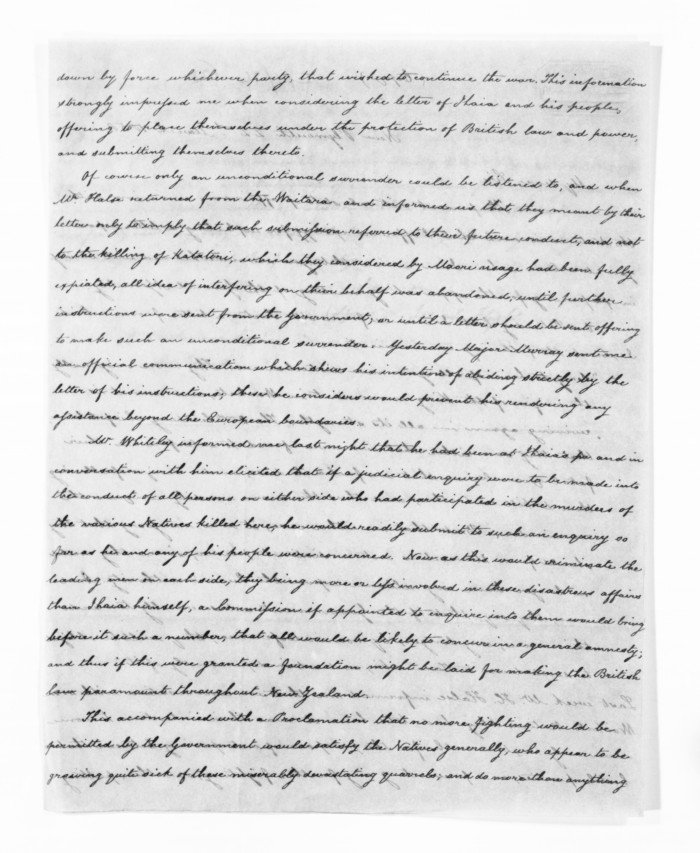 down by force whichever party, that wished to continue the war. This information
strongly impressed me when considering the letter of Ihaia and his people,
offering to place themselves under the protection of British law and power,
and submitting themselves thereto.
Of course only an unconditional surrender could be listened to, and when
Mr Halse returned from the Waitara and informed us that they meant by their
letter only to imply that such submission referred to their future conduct, and not
to the killing of Katatori, which they considered by Maori usage had been fully
expiated, all idea of interfering on their behalf was abandoned, until further
instructions were sent from the Government, or until a letter should be sent offering
to make such an unconditional surrender. Yesterday Major Murray sent me
an official communication which shews his intention of abiding strictly by the
letter of his instructions, these he considers would prevent his rendering any
assistance beyond the European boundaries
Mr. Whitely informed me last night that he had been at Ihaia's pa and in
conversation with him elicited that if a judicial enquiry were to be made into
the conduct of all persons on either side who had participated in the murders of
the various Natives killed here, he would readily submit to such an enquiry so
far as he and any of his people were concerned. Now as this would criminate the
leading men on each side, they being more or less involved in these disastrous affairs
than Ihaia himself, a Commission if appointed to enquire into them would bring
before it such a number, that all would be likely to concur in a general amnesty;
and thus if this were granted a foundation might be laid for making the British
law paramount throughout New Zealand.
This accompanied with a Proclamation that no more fighting would be
permitted by the Government would satisfy the Natives generally, who appear to be
growing quite sick of these miserably devastating quarrels; and do more than anything